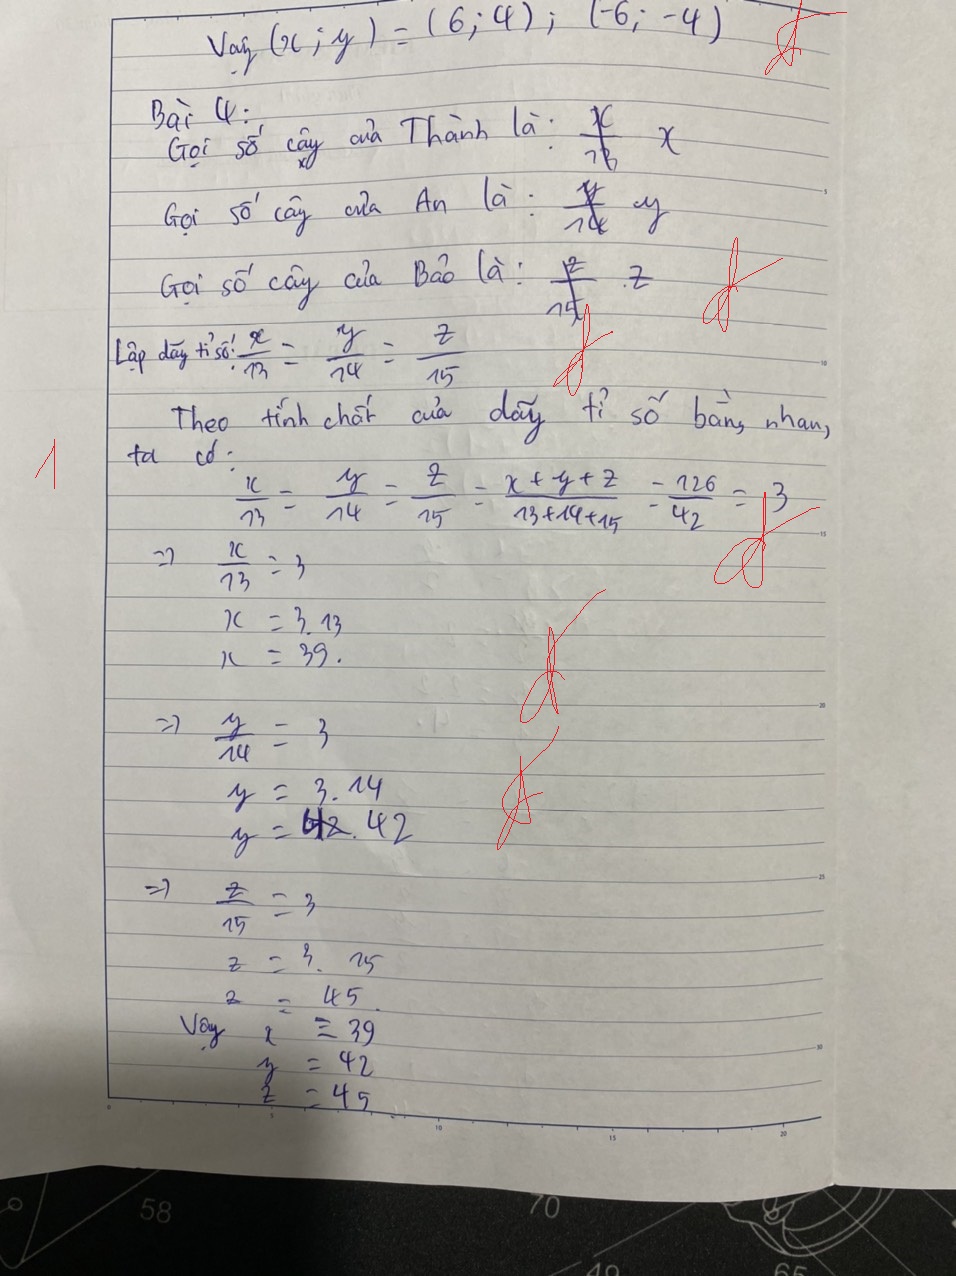 Vậy (x; y) = (6; 4); (-6; -4)
Bài 4:
Gọi số cây của Thành là: x/13 x
Gọi số cây của An là: y/14 y
Gọi số cây của Bảo là: z/15 z
Lập dãy tỉ số: x/13 = y/14 = z/15
Theo tính chất của dãy tỉ số bằng nhau,
ta có:
1
x/13 = y/14 = z/15 = x+y+z/13+14+15 = 126/42 = 3
=> x/13 = 3
x = 3.13
x = 39.
=> y/14 = 3
y = 3.14
y = 42
=> z/15 = 3
z = 3. 15
z = 45.
Vậy x = 39
y = 42
z = 45
5
10
15
20
25
30
0 5 10 15 20
58 70 49 65